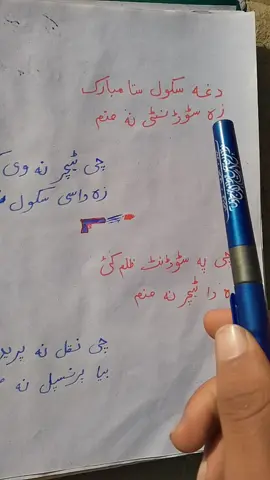 دغه سکول ستا مبارک
زه سټوډنټي نه منم
چې ټیچر نه وي
زه داسې سکول
چې په سټوډنټ ظلم کړي
دا ټیچر نه منم
چې نقل نه
بیا پرنسپل نه